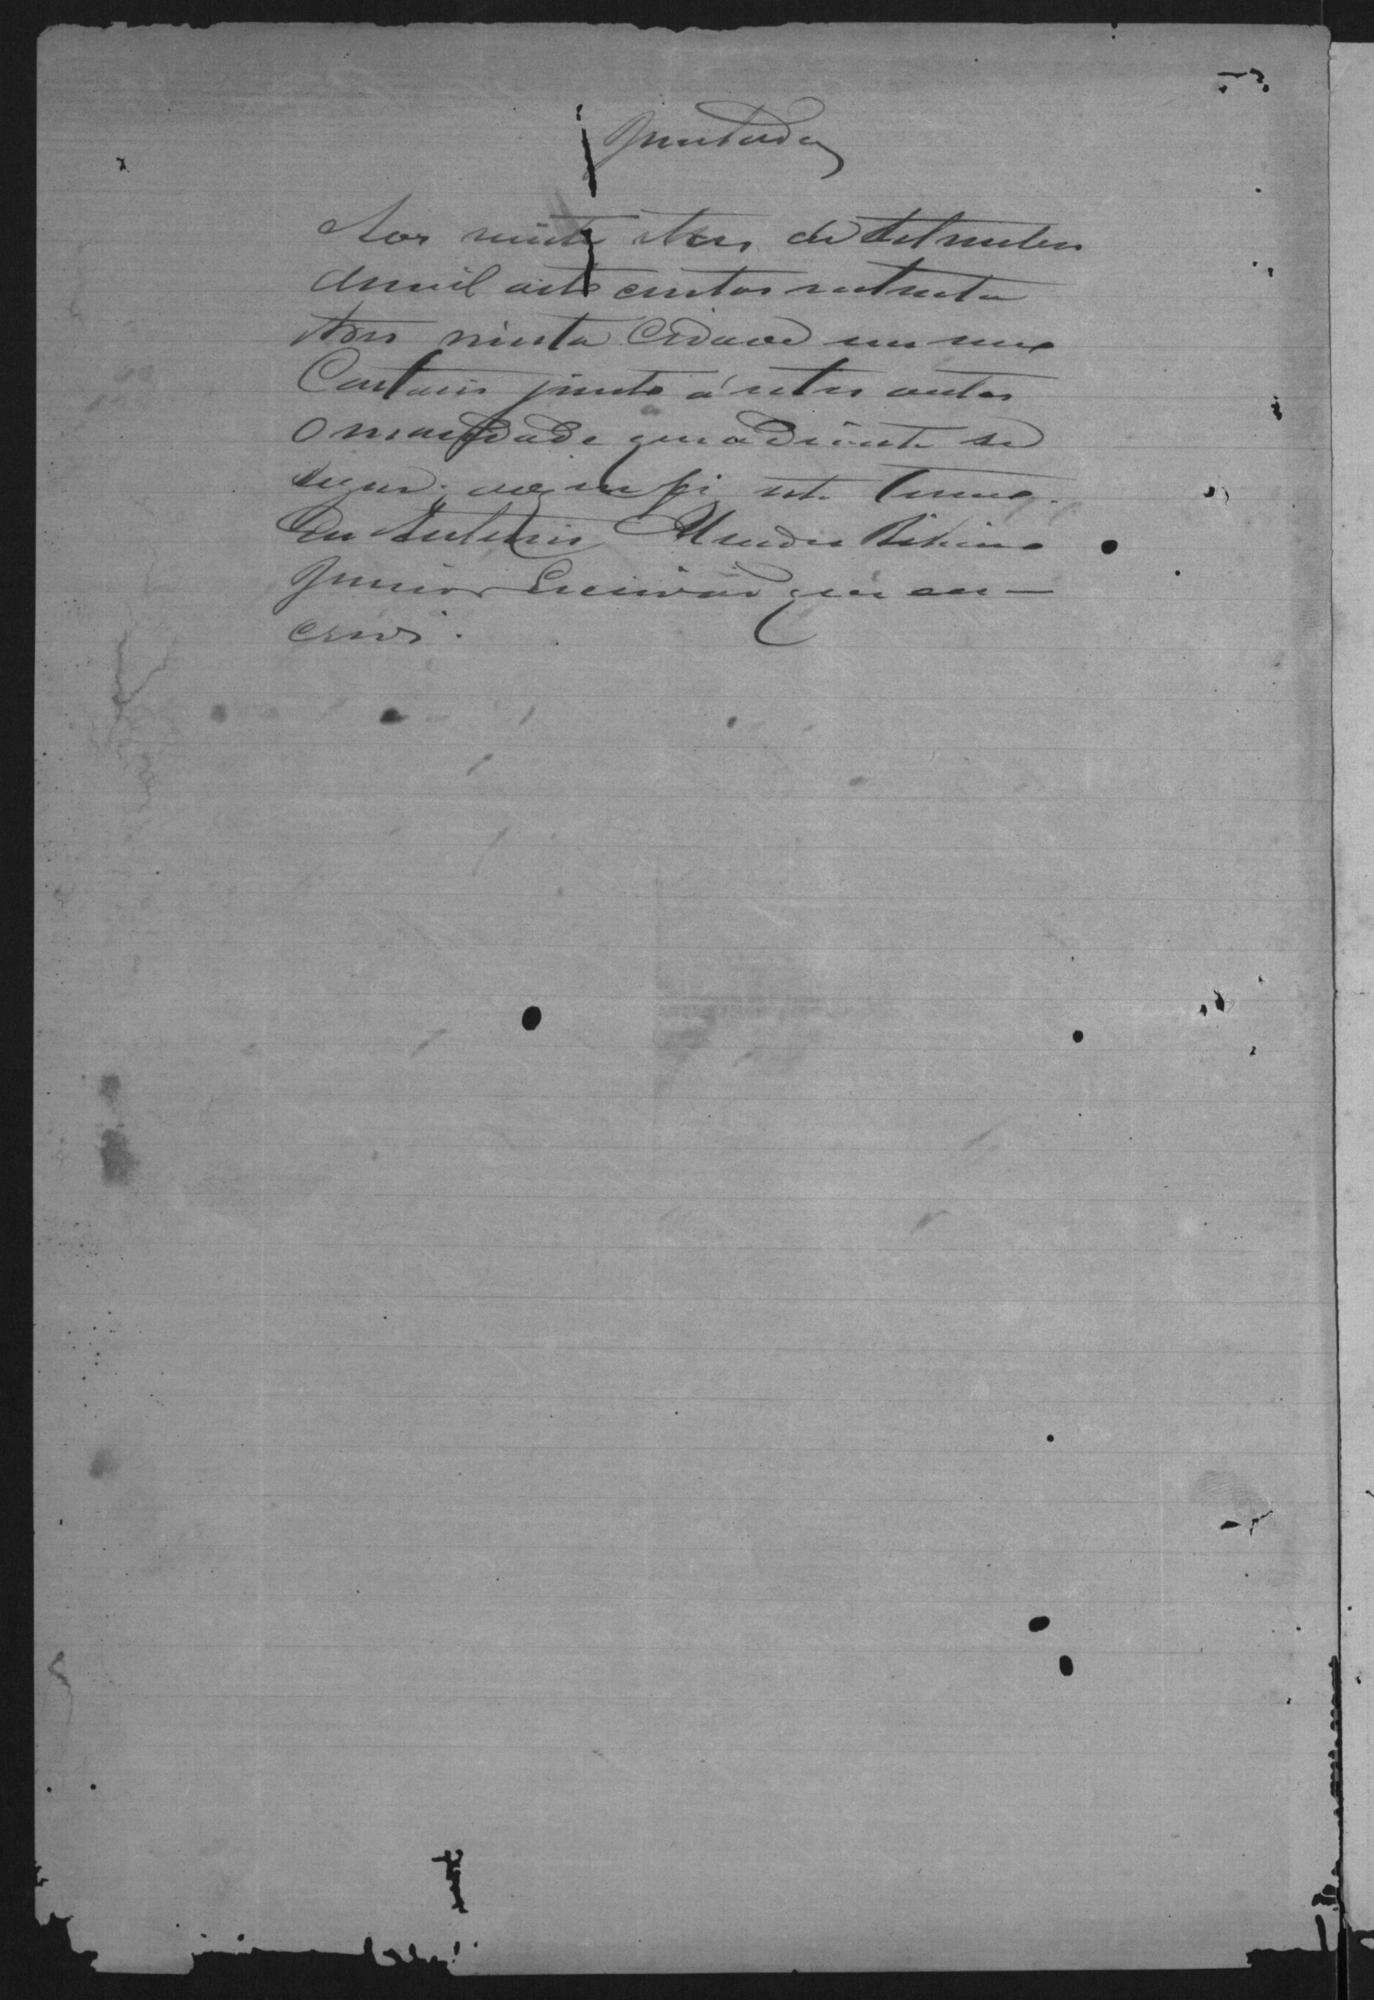 Juntada
Aos vinte tres de Setembro
de mil oito centos setenta
tres nesta Cidade em meu
Cartorio junto á estes autos
o mandado que adiante se
segue; do que fiz este termo.
Eu Antonio Mendes Ribeiro
Junior Escrivão que es-
crevi.